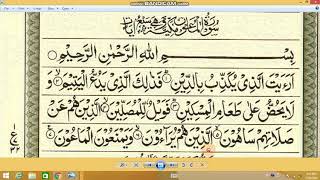 بِسْمِ اللهِ الرَّحْمٰنِ الرَّحِيْمِ
اَرَءَيْتَ الَّذِيْ يُكَذِّبُ بِالدِّيْنِ فَذٰلِكَ الَّذِيْ يَدُعُّ الْيَتِيْمَ وَ
لَا يَحُضُّ عَلٰى طَعَامِ الْمِسْكِيْنِ فَوَيْلٌ لِّلْمُصَلِّيْنَ الَّذِيْنَ هُمْ عَنْ
صَلَاتِهِمْ سَاهُوْنَ الَّذِيْنَ هُمْ يُرَآءُوْنَ وَيَمْنَعُوْنَ الْمَاعُوْنَ